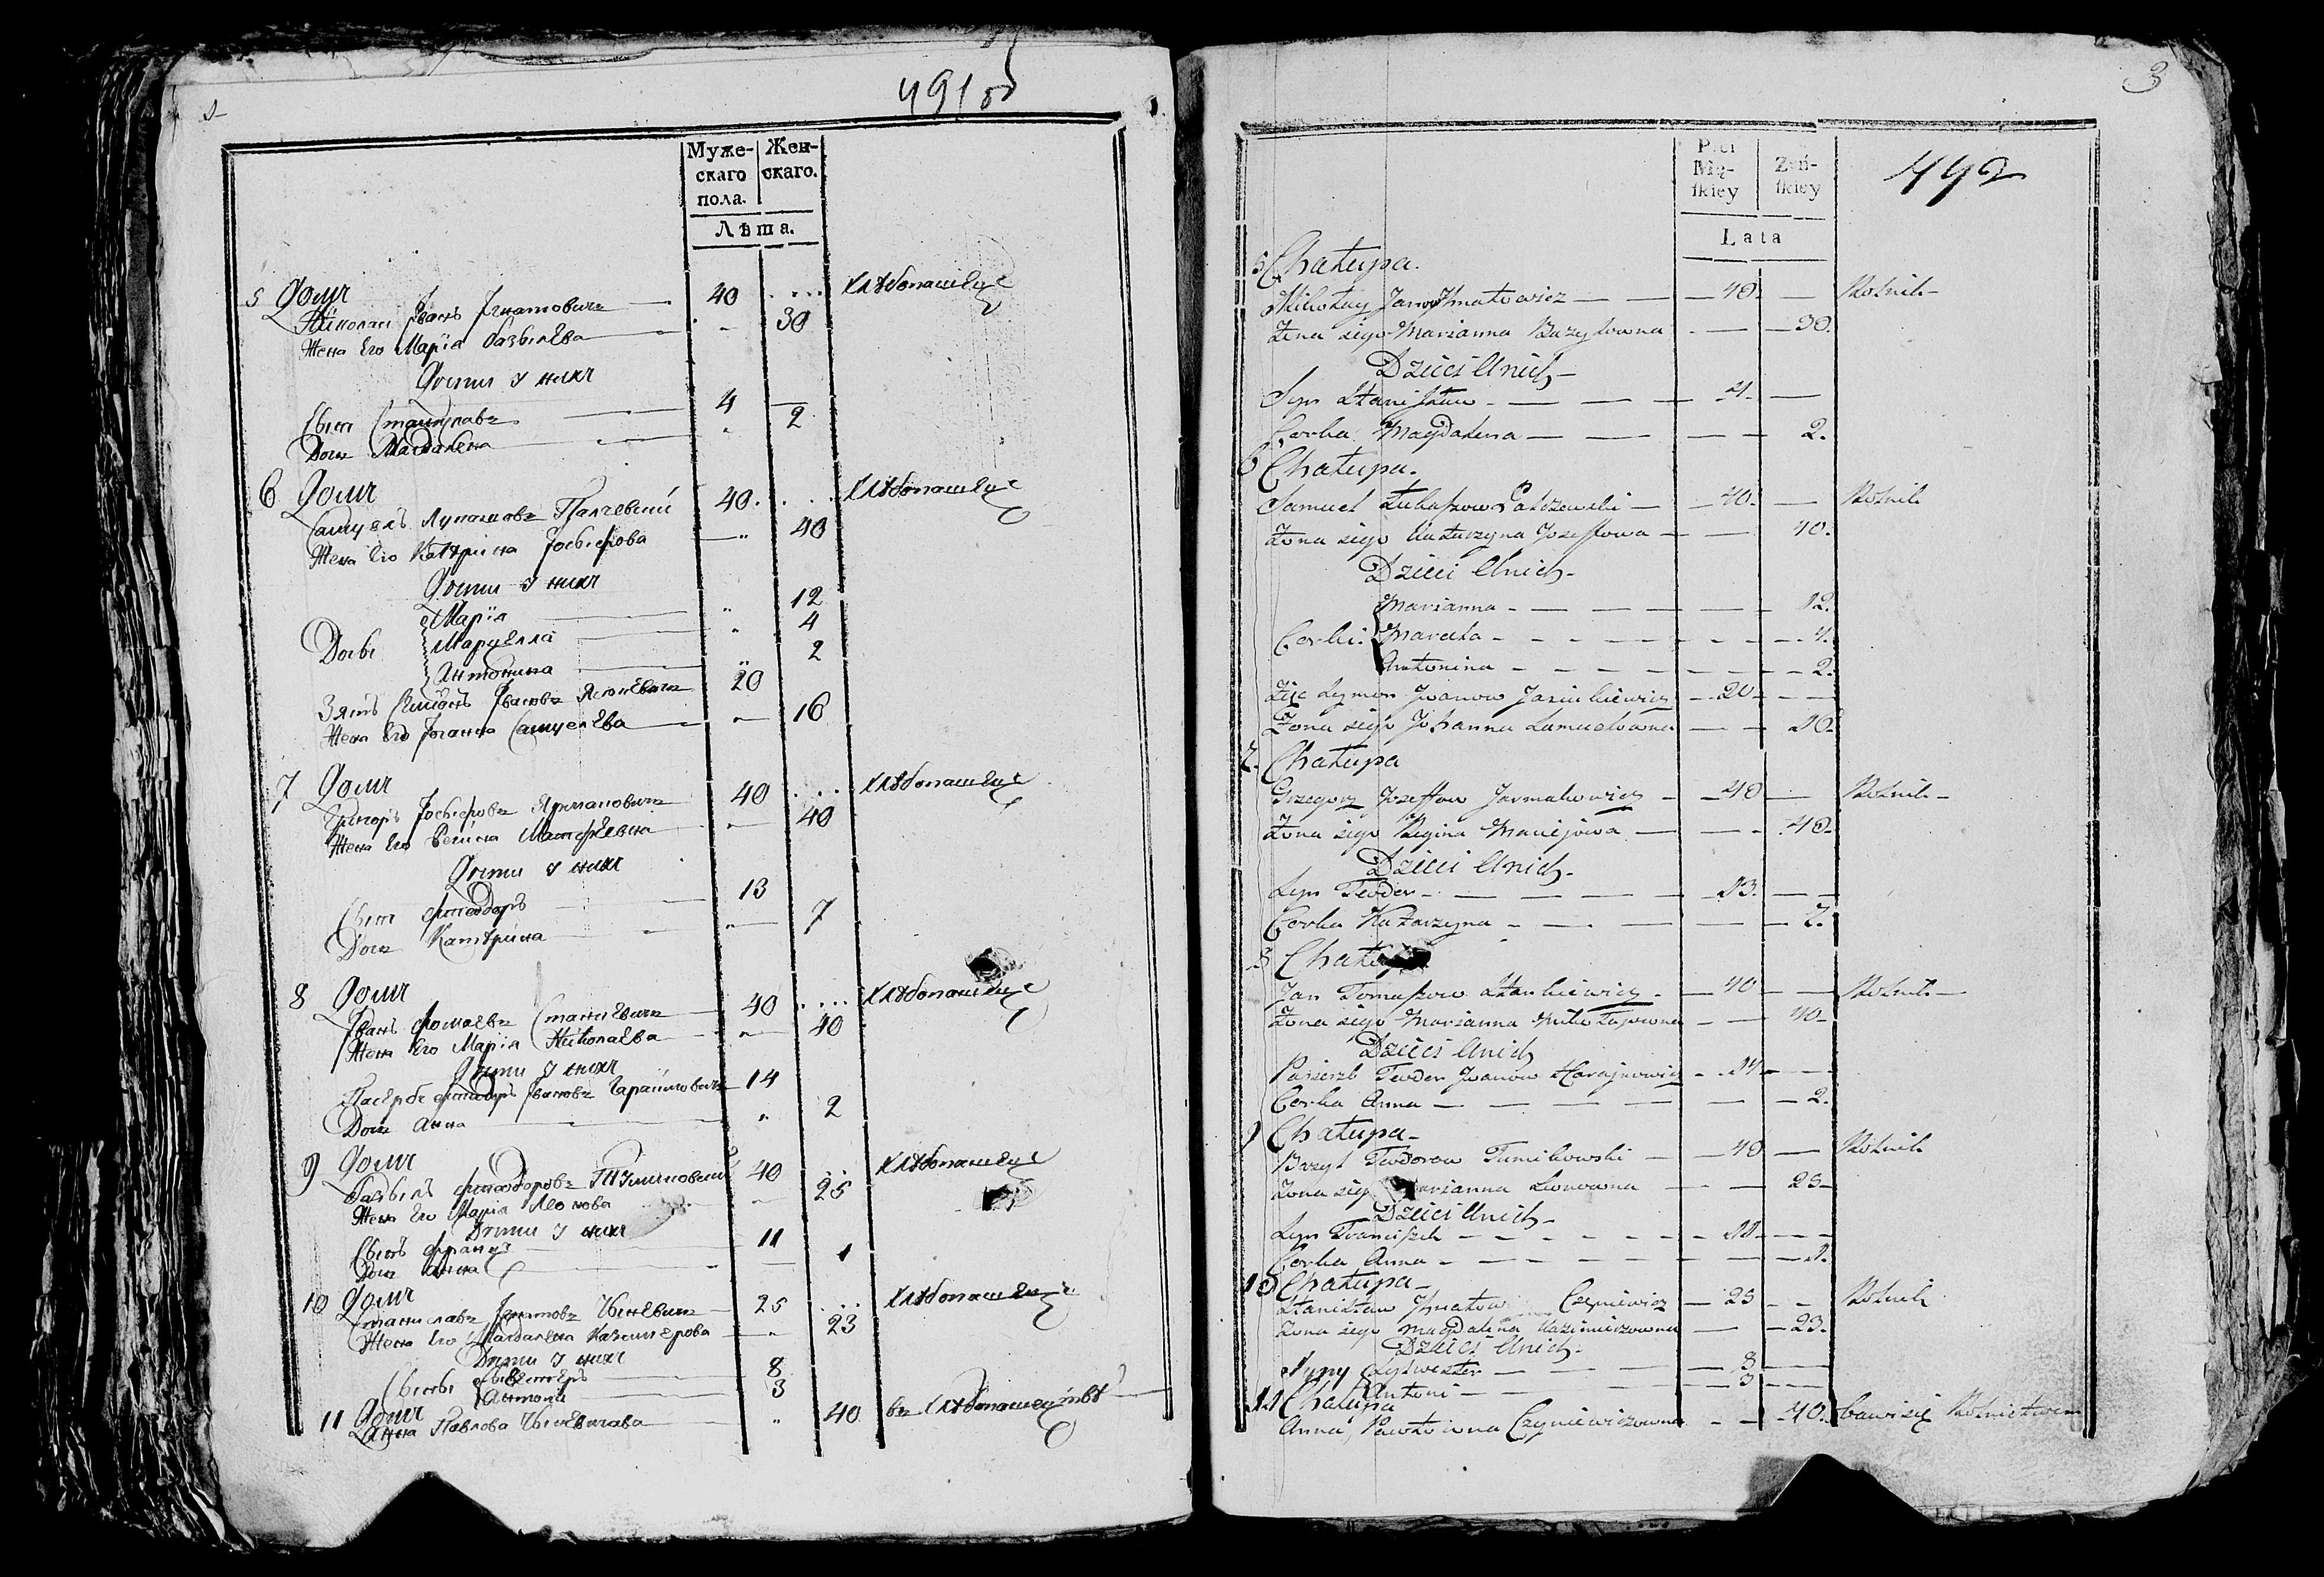 491 об
Муже-
скаго
пола.
Жен-
скаго.
Лѣта.
5 Домъ
Николай Иванъ Игнатовичъ — 40 ... хлѣбопашецъ
Жена Его Марїя Базылева — 30
Дѣти у нихъ
Сынъ Станиславъ — 4 —
Дочь Магдалена — 2
6 Домъ
Самуель Лукашовъ Палчевскій 40. ... хлѣбопашецъ
Жена Его Катярина Іосыфова — 40
Дѣти у нихъ
Марія 12
Дочьвы Марцелла 4
Антонина 2
Зять Сымонъ Ивановъ Ясюкевичъ 20
Жена Его Іоганна Самуелева — 16
7 Домъ
Григоръ Іосыфовъ Ярмаковичъ 40 ... хлѣбопашецъ
Жена Его Регина Матфѣевна — 40
Дѣти у нихъ
Сынъ Фтеодоръ 13
Дочь Катярина — 7
8 Домъ
Иванъ Фомаевъ Станкевичъ 40 ... хлѣбопашецъ
Жена Его Марія Николаева — 40
Дѣти у нихъ
Пасербъ Фтеодоръ Ивановъ 14
Дочь Анна 2
9 Домъ
Базыль Фтеодоровъ Тумиловскій 40 ... хлѣбопашецъ
Жена Его Марія Леонова — 25
Дѣти у нихъ
Сынъ Францъ 11
Дочь Анна — 1
10 Домъ
Станиславъ Игнатовъ Чыневичъ — 25 ... хлѣбопашецъ
Жена Его Магдалена Казимѣрова — 23
Дѣти у нихъ
Сыны Сывестеръ 8
Антони 3
11 Домъ
Анна Павлова Чыневичава 40 въ хлѣбопашествѣ
3
Płci
Mę-
ſkiey
Zeń-
ſkiey
492
Lata
5 Chałupa.
Mikołay Janow Jhnatowicz — — 40. — Rolnik —
Zona iego Marianna Bazylowna — 30.
Dzieci Unich —
Syn Stanisław — 4. —
Corka Magdalena — 2.
6 Chałupa.
Samuel Łukaszow Palczewski — 40. — Rolnik
Zona iego Katarzyna Jozeffowa — 40.
Dzieci Unich —
Marianna — 12.
Corki. Marcela — 4.
Antonina — 2.
Zięc Symon Jwanow Jasiukiewicz — 20 —
Zona iego Johanna Samuelowna — 16.
7. Chałupa
Grzegorz Jozeffow Jarmakowicz — 40 — Rolnik —
Zona iego Regina Maciejowa — 40.
Dzieci Unich —
Syn Teodor — 13. —
Corka Katarzyna — 7.
8 Chału
Jan Tomaszow Stankiewicz — 40 — Rolnik —
Zona iego Marianna Mikołajowna — 40
Dzieci Unich
Pasierzb Teodor Jwanow Harajnowicz — 14 —
Corka Anna — 2.
9 Chałupa —
Bazyl Teodorow Tumiłowski — 40 — Rolnik
Zona ieg arianna Leonowna — 25 —
Dzieci Unich —
Syn Franciszek — 11 —
Corka Anna — 1.
10 Chałupa —
Stanisław Jhnatow Czyniewicz — 25 — Rolnik
Zona iego Magdalena Kazimierzowna — 23.
Dzieci Unich —
Syny Sylwester — 8 —
Antoni — 3 —
11 Chałupa
Anna Pawłowna Czyniewiczowna — 40. bawi się Rolnictwem